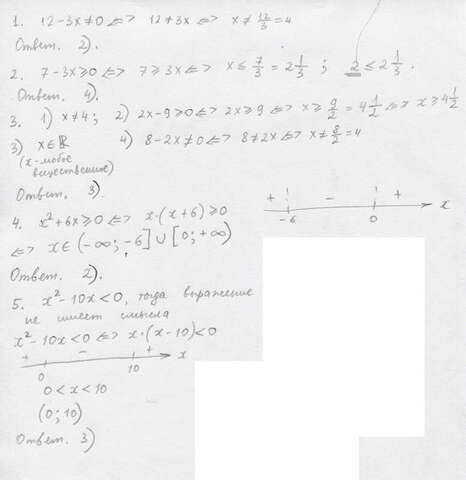 1. 12-3x≠0 <=> 12≠3x <=> x≠ 12/3 =4
Ответ. 2).
2. 7-3x≥0 <=> 7≥3x <=> x≤ 7/3 = 2 1/3 ; 2 ≤ 2 1/3 .
Ответ. 4).
3. 1) x≠4; 2) 2x-9≥0 <=> 2x≥9 <=> x≥ 9/2 = 4 1/2 <=> x≥4 1/2
3) x∈ℝ 4) 8-2x≠0 <=> 8≠2x <=> x≠ 8/2 =4
(x-любое
вещественное)
Ответ. 3).
+ - + x
-6 0
4. x²+6x≥0 <=> x·(x+6)≥0
<=> x∈(-∞;-6]∪[0;+∞)
Ответ. 2).
5. x²-10x<0, тогда выражение
не имеет смысла
x²-10x<0 <=> x·(x-10)<0
+ - + x
0 10
0<x<10
(0;10)
Ответ. 3)